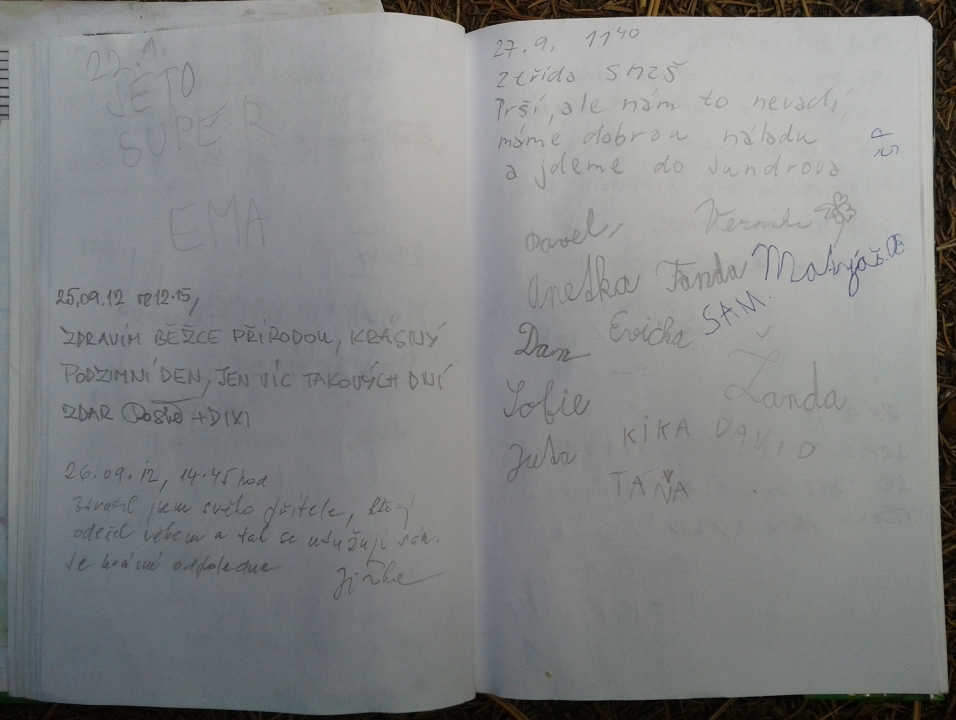 22.1.
JE TO
SUPER
EMA
25,09.12 12.15,
ZDRAVÍM BĚŽCE PŘÍRODOU, KRÁSNÝ
PODZIMNÍ DEN, JEN VÍC TAKOVÝCH DNÍ
ZDAR +DIXI
26.09.12, 14.45 hod
Ztratil jsem svého přítele, který
odešel během a tak se sám.
Je krásné odpoledne
27.9. 11⁴⁰
2 třída SMZŠ
Prší, ale nám to nevadí,
máme dobrou náladu
a jdeme do Jundrova
Pavel,
Anežka Fanda Matyáš
Dan Evička SAM.
Žanda
Sofie
KIKA DAVID
TAŇA